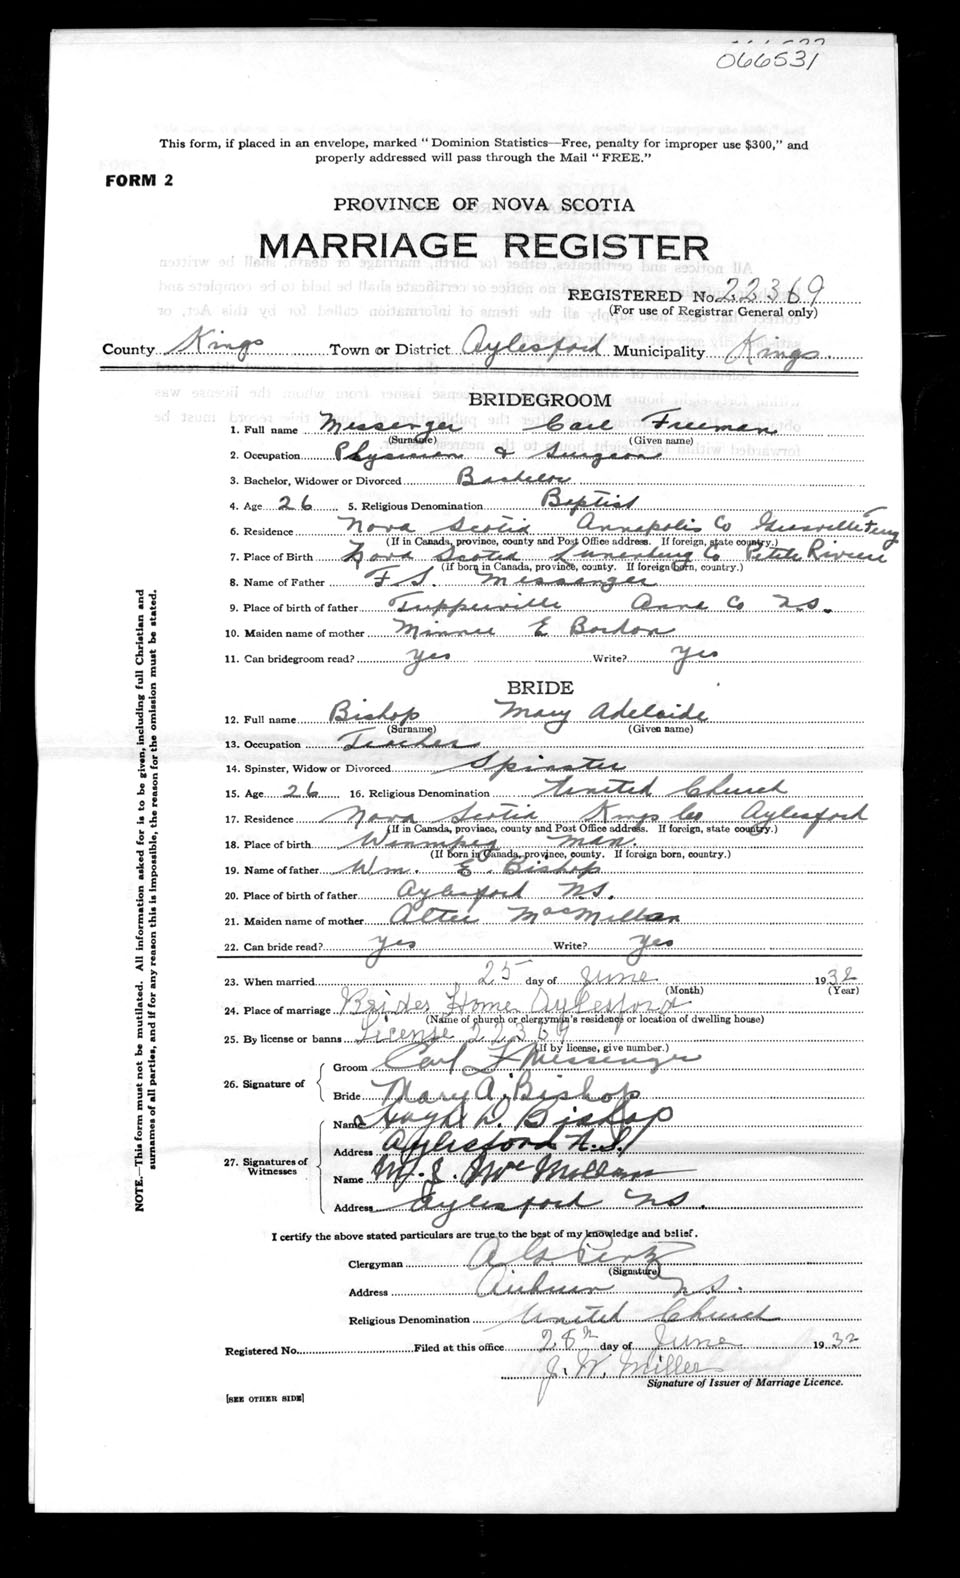 066531
This form, if placed in an envelope, marked "Dominion Statistics—Free, penalty for improper use $300," and
properly addressed will pass through the Mail "FREE."
FORM 2
PROVINCE OF NOVA SCOTIA
MARRIAGE REGISTER
REGISTERED No. 22369
(For use of Registrar General only)
County Kings Town or District Aylesford Municipality Kings
BRIDEGROOM
1. Full name Messenger Carl Freeman
(Surname) (Given name)
2. Occupation Physician & Surgeon
3. Bachelor, Widower or Divorced Bachelor
4. Age 26 5. Religious Denomination Baptist
6. Residence Nova Scotia Annapolis Co Granville Ferry
(If in Canada, province, county and Post Office address. If foreign, state country.)
7. Place of Birth Nova Scotia Lunenburg Co Petite Riviere
(If born in Canada, province, county. If foreign born, country.)
8. Name of Father F S. Messenger
9. Place of birth of father Tupperville Anna Co N.S.
10. Maiden name of mother Minnie E Bordon
11. Can bridegroom read? yes Write? yes
BRIDE
12. Full name Bishop Mary Adelaide
(Surname) (Given name)
13. Occupation Teacher
14. Spinster, Widow or Divorced Spinster
15. Age 26 16. Religious Denomination United Church
17. Residence Nova Scotia Kings Co Aylesford
(If in Canada, province, county and Post Office address. If foreign, state country.)
18. Place of birth Winnipeg Man.
(If born in Canada, province, county. If foreign born, country.)
19. Name of father Wm. E. Bishop
20. Place of birth of father Aylesford N.S.
21. Maiden name of mother MacMillan
22. Can bride read? yes Write? yes
23. When married 25 day of June 1932
(Month) (Year)
24. Place of marriage Brides Home Aylesford
(Name of church or clergyman's residence or location of dwelling house)
25. By license or banns License 22369
(If by license, give number.)
26. Signature of
Groom Carl F Messenger
Bride Mary A. Bishop
27. Signatures of Witnesses
Name D. Bishop
Address Aylesford N.S.
Name M. J. McMillan
Address Aylesford N.S.
I certify the above stated particulars are true to the best of my knowledge and belief.
Clergyman
(Signature)
Address N.S.
Religious Denomination United Church
Registered No. Filed at this office 28th day of June 1932
J. W. Miller
Signature of Issuer of Marriage Licence.
[SEE OTHER SIDE]
NOTE.—This form must not be mutilated. All information asked for is to be given, including full Christian and
surnames of all parties, and if for any reason this is impossible, the reason for the omission must be stated.